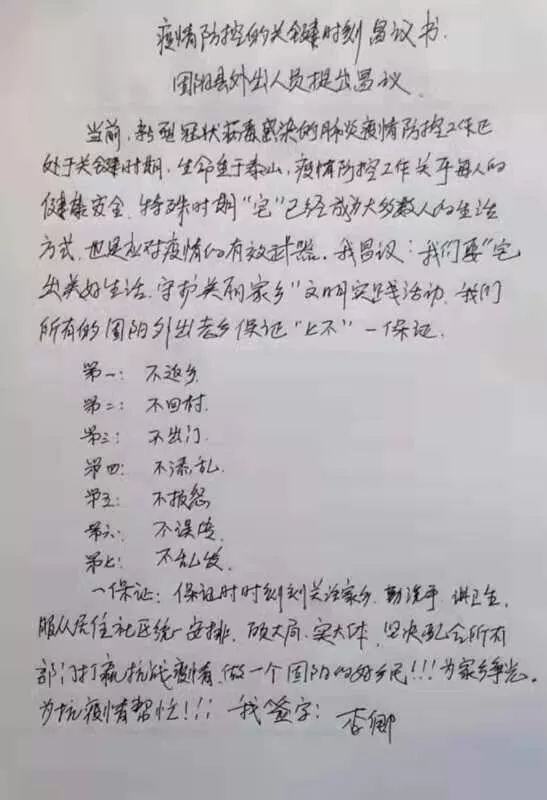 疫情防控的关键时刻昌议书.
团阳县外出人员提出昌议.
当前,新型冠状病毒感染的肺炎疫情防控工作已
处于关键时期,生命重于泰山,疫情防控工作关乎每人的
健康安全.特殊时期"宅"已经成为大多数人的生活
方式.也是应对疫情的有效武器.我昌议:我们要"宅
出美好生活.守护美丽家乡"文明实践活动.我们
所有的团阳外出老乡保证"七不"一保证.
第一: 不返乡.
第二: 不回村.
第三: 不出门
第四: 不添乱.
第五: 不报怨
第六: 不误传.
第七: 不乱发.
一保证: 保证时时刻刻关注家乡.勤洗手.讲卫生.
服从居住社区统一安排.顾大局.实大体.坚决配合所有
部门打赢抗战疫情.做一个团阳的好乡民!!!为家乡争光.
为抗疫情帮忙!!! 我签字: 李卿